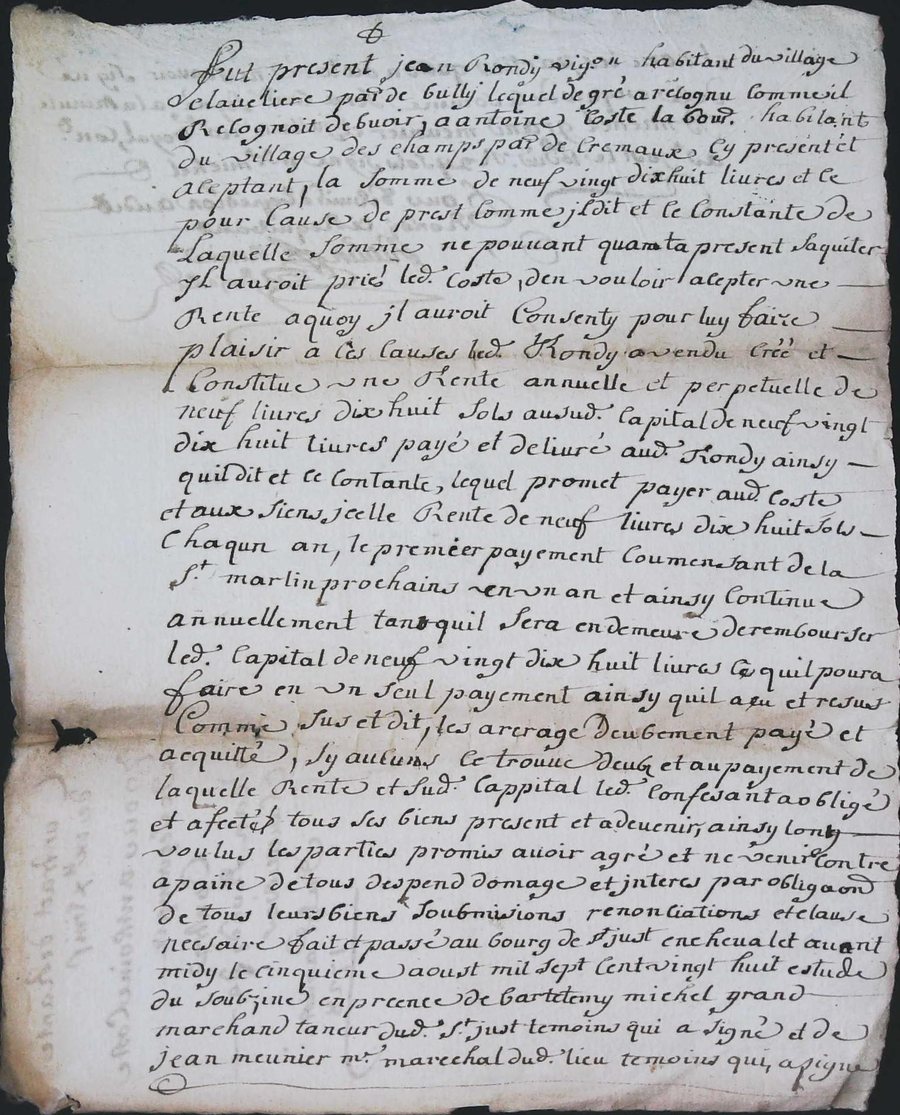 fut present jean Rondy vigon habitant du village
Claveliere par de bully lequel de gré a relognu Comme il
Relognoit debuoir, a antoine Coste labour. habitant
du village des champs par de Cremaux Cy present et
aleptant, la somme de neuf vingt dix huit livres et ce
pour Cause de prest Comme jl dit et ce Constante de
Laquelle somme ne pouvant quanta present saquiter
jl auroit priés led. Coste, den vouloir alepter une
Rente aquoy jl auroit Consenty pour luy faire
plaisir a Ces Causes led. Rondy a vendu Créé et
Constitue une Rente annuelle et perpetuelle de
neuf livres dix huit sols ausud. Capital de neuf vingt
dix huit livres payé et delivré aud. Rondy ainsy
quil dit et ce Contante, lequel promet payer aud. Coste
et aux siens jcelle Rente de neuf livres dix huit sols
Chaqun an, le premier payement Coumensant de la
St. martin prochains en un an et ainsy Continue
annuellement tant quil sera en demeure de rembourser
led. Capital de neuf vingt dix huit livres Ce quil poura
faire en un seul payement ainsy quil a eu et resus
Comme sus et dit, les arerage deubement payé et
acquitté, sy aucuns Ce trouve deub et au payement de
laquelle Rente et sud. Cappital led. Confesant a obligé
et afecté tous ses biens present et advenir, ainsy lont
voulus les parties promis avoir agré et ne venir Contre
apaine de tous despend domage et jnteres par obligaon
de tous leurs biens soubmisions renonciations et clause
necsaire fait et passé au bourg de st just en chevalet avant
midy le cinquieme aoust mil sept Cent vingt huit estude
du soubzine en preence de bartelemy michel grand
marchand taneur dud. St. just temoins qui a signé et de
jean meunier mr. marechal dud. lieu temoins qui, a signe